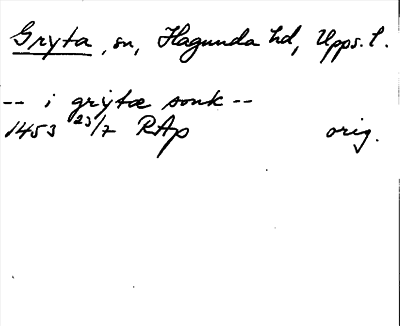 Gryta, sn, Hagunda hd, Upps. l.
-- i grytæ sonk --
1453 23/7 RAp orig.